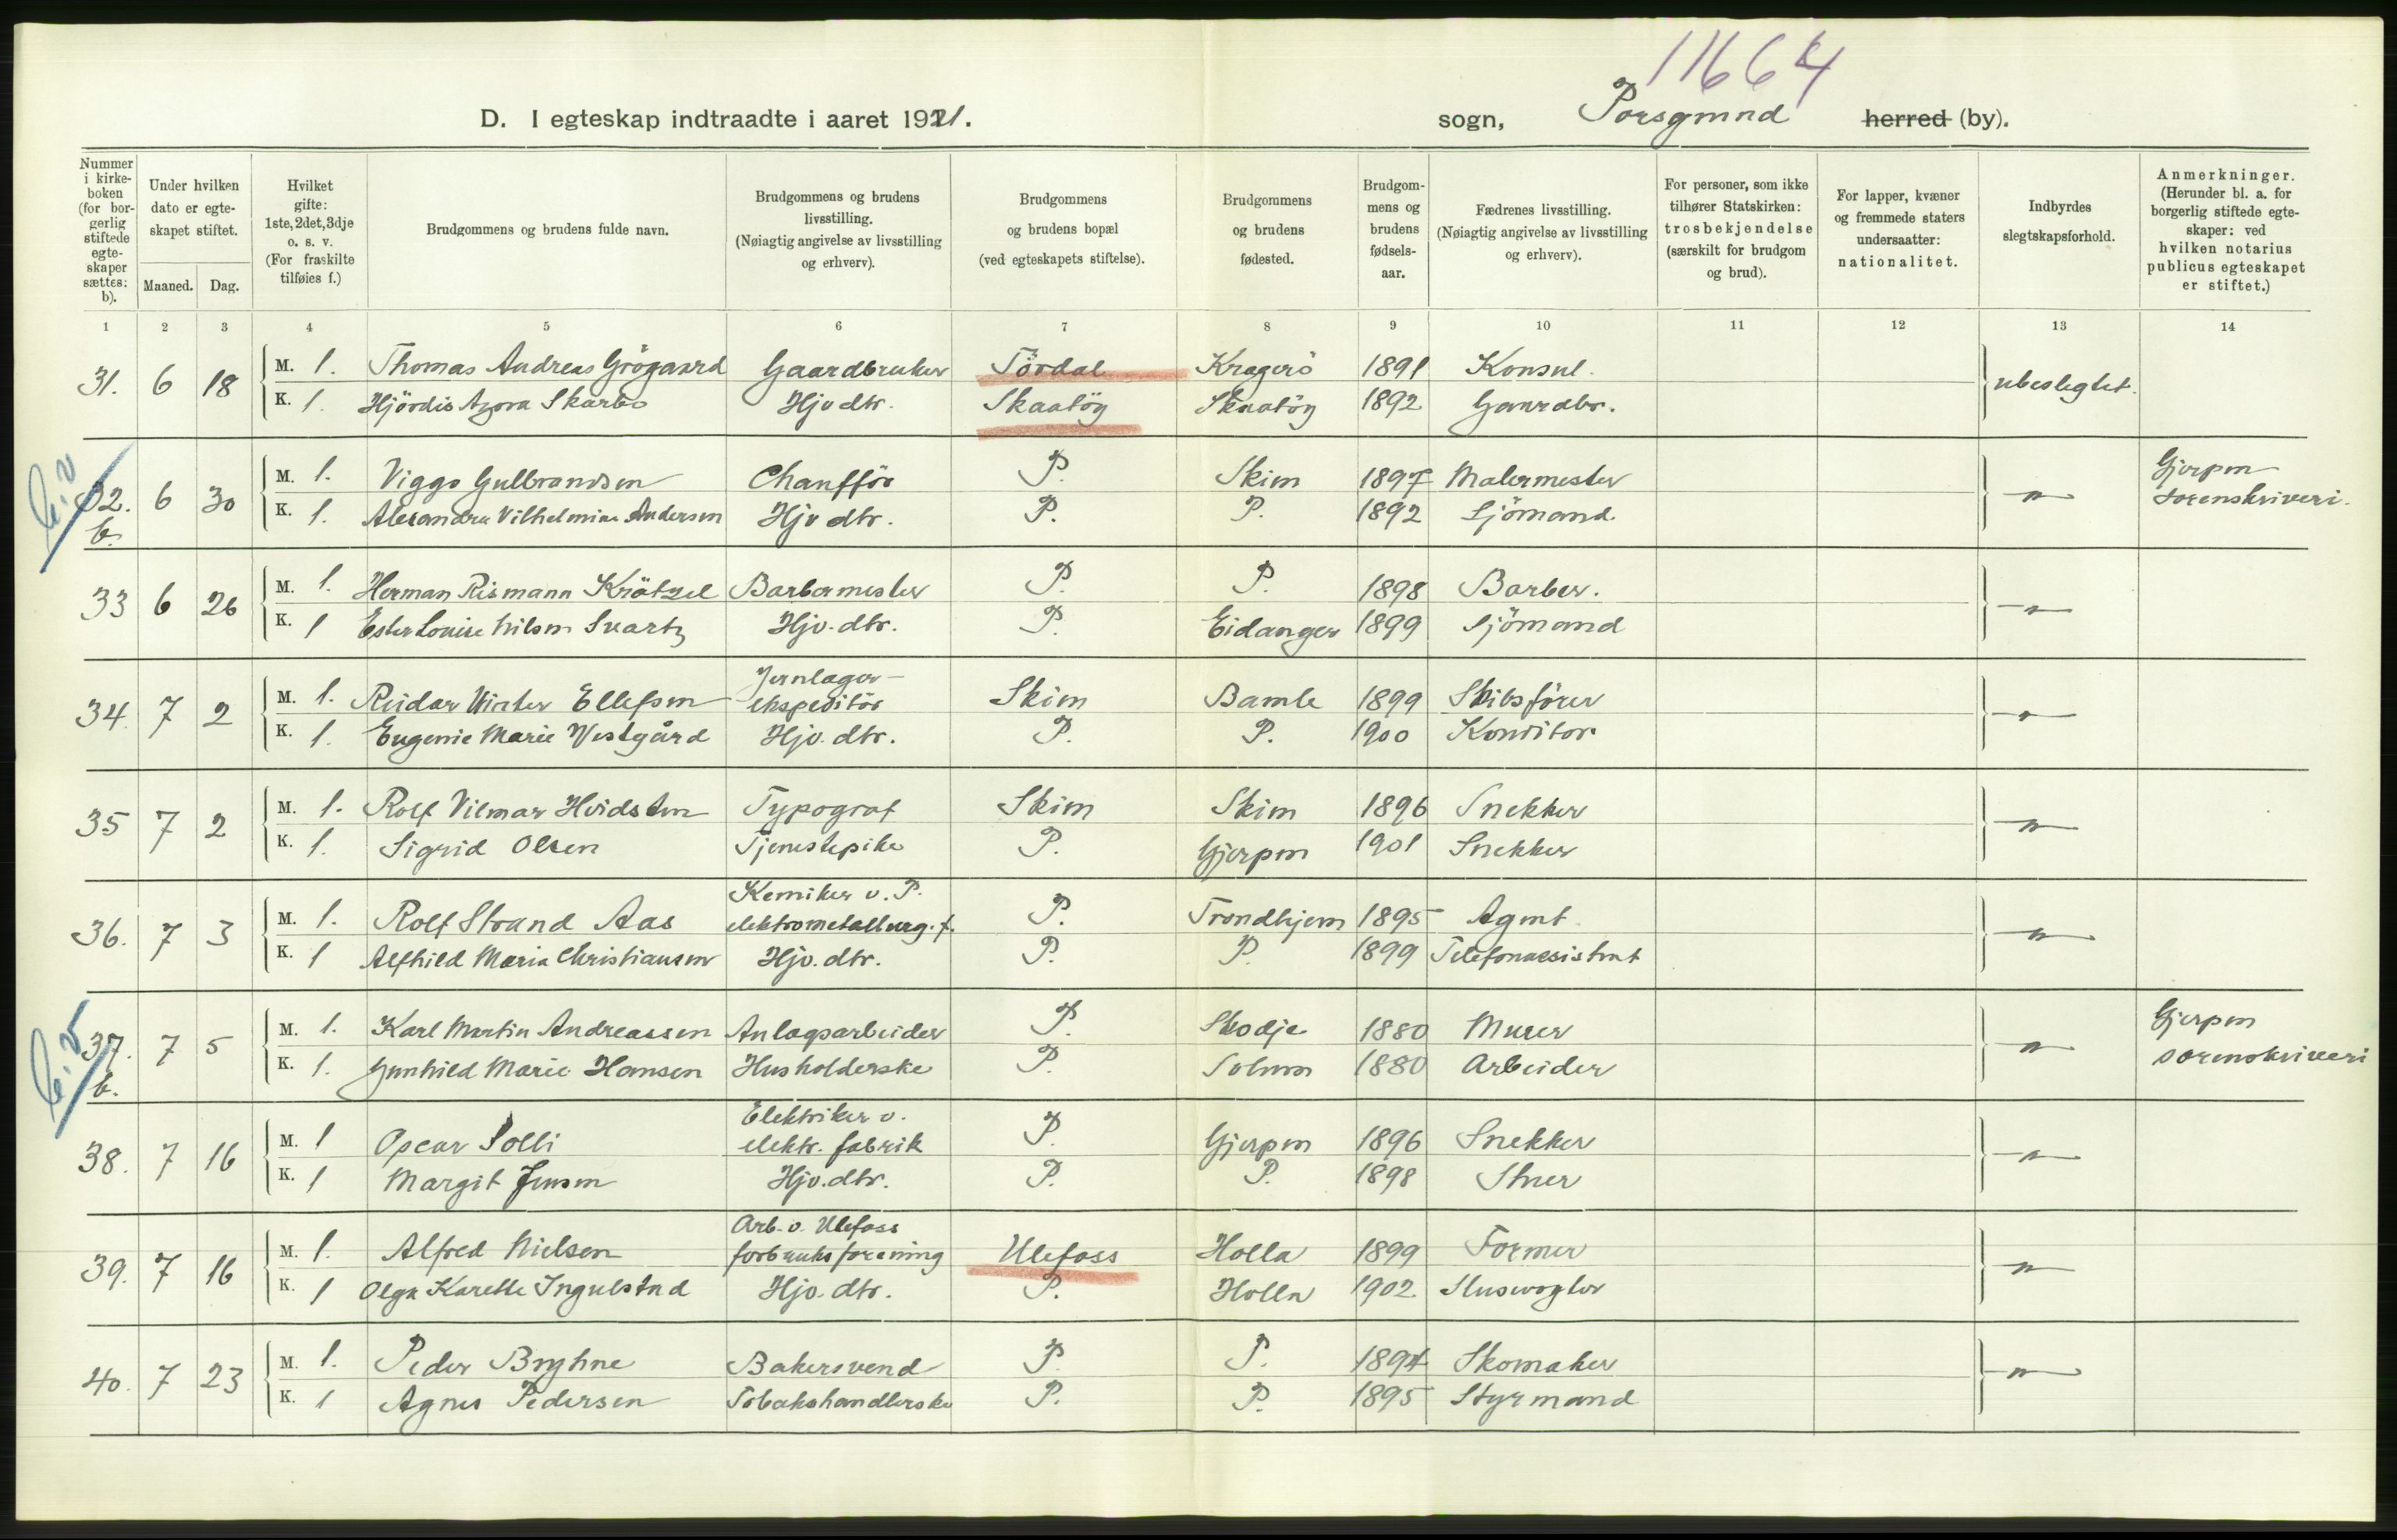 11664
D. I egteskap indtraadte i aaret 1921. sogn, Porsgrund herred (by).
Nummer i kirkeboken (for borgerlig stiftede egteskaper sættes: b).
Under hvilken dato er egteskapet stiftet.
Maaned. Dag.
Hvilket gifte: 1ste, 2det, 3dje o. s. v. (For fraskilte tilføies f.)
Brudgommens og brudens fulde navn.
Brudgommens og brudens livsstilling. (Nøiagtig angivelse av livsstilling og erhverv).
Brudgommens og brudens bopæl (ved egteskapets stiftelse).
Brudgommens og brudens fødested.
Brudgommens og brudens fødselsaar.
Fædrenes livsstilling. (Nøiagtig angivelse av livsstilling og erhverv).
For personer, som ikke tilhører Statskirken: trosbekjendelse (særskilt for brudgom og brud).
For lapper, kvæner og fremmede staters undersaatter: nationalitet.
Indbyrdes slegtskapsforhold.
Anmerkninger. (Herunder bl. a. for borgerlig stiftede egteskaper: ved hvilken notarius publicus egteskapet er stiftet.)
1 2 3 4 5 6 7 8 9 10 11 12 13 14
31. 6 18 M. 1. Thomas Andreas Grögaard Gaardbruker Tördal Kragerö 1891 Konsul. ubeslegtet.
K. 1. Hjördis Agora Skarbo Hjv dtr. Skaatöy Skaatöy 1892 Gaardbr.
b.v
32. b. 6 30 M. 1. Viggo Gulbrandsen Chanfför P. Skien 1897 Malermester — " — Gjerpen Sorenskriveri.
K. 1. Alexandra Vilhelmine Andersen Hjv dtr. P. P. 1892 Sjömand.
33 6 26 M. 1. Herman Rismann Krätzel Barbermester P. P. 1898 Barber. — " —
K. 1 Ester Louise Nilsen Svartz Hjv. dtr. P. Eidanger 1899 Sjömand
34. 7 2 M. 1. Reidar Winter Ellefsen Jernlager-ekspeditör Skien Bamle 1899 Skibsförer — " —
K. 1. Eugenie Marie Vestgård Hjv. dtr. P. P. 1900 Konditor
35 7 2 M. 1. Rolf Vilmar Hvidsten Typograf Skien Skien 1896 Snekker — " —
K. 1. Sigrid Olsen Tjenestepike P. Gjerpen 1901 Snekker
36. 7 3 M. 1. Rolf Strand Aas Kemiker v. P. elektrometallurg. f. P. Trondhjem 1895 Agent — " —
K. 1 Alfhild Marie Christiansen Hjv. dtr. P. P. 1899 Telefonassistent
b.v
37. b. 7 5 M. 1. Karl Martin Andreassen Anlagsarbeider P. Skodje 1880 Murer — " — Gjerpen sorenskriveri
K. 1. Gunhild Marie Hansen Husholderske P. Solum 1880 Arbeider
38. 7 16 M. 1 Oscar Solli Elektriker v. elektr. fabrik P. Gjerpen 1896 Snekker — " —
K. 1 Margit Jensen Hjv. dtr. P. P. 1898 Stuer
39. 7 16 M. 1. Alfred Nielsen Arb. v. Ulefoss forbruksforening Ulefoss Holla 1899 Former — " —
K. 1 Olga Karelle Ingulstad Hjv. dtr. P. Holla 1902. Slusevogter
40. 7 23 M. 1. Peder Bryhne Bakersvend P. P. 1894 Skomaker — " —
K. 1 Agnes Pedersen Tobakshandlerske P. P. 1895 Styrmand